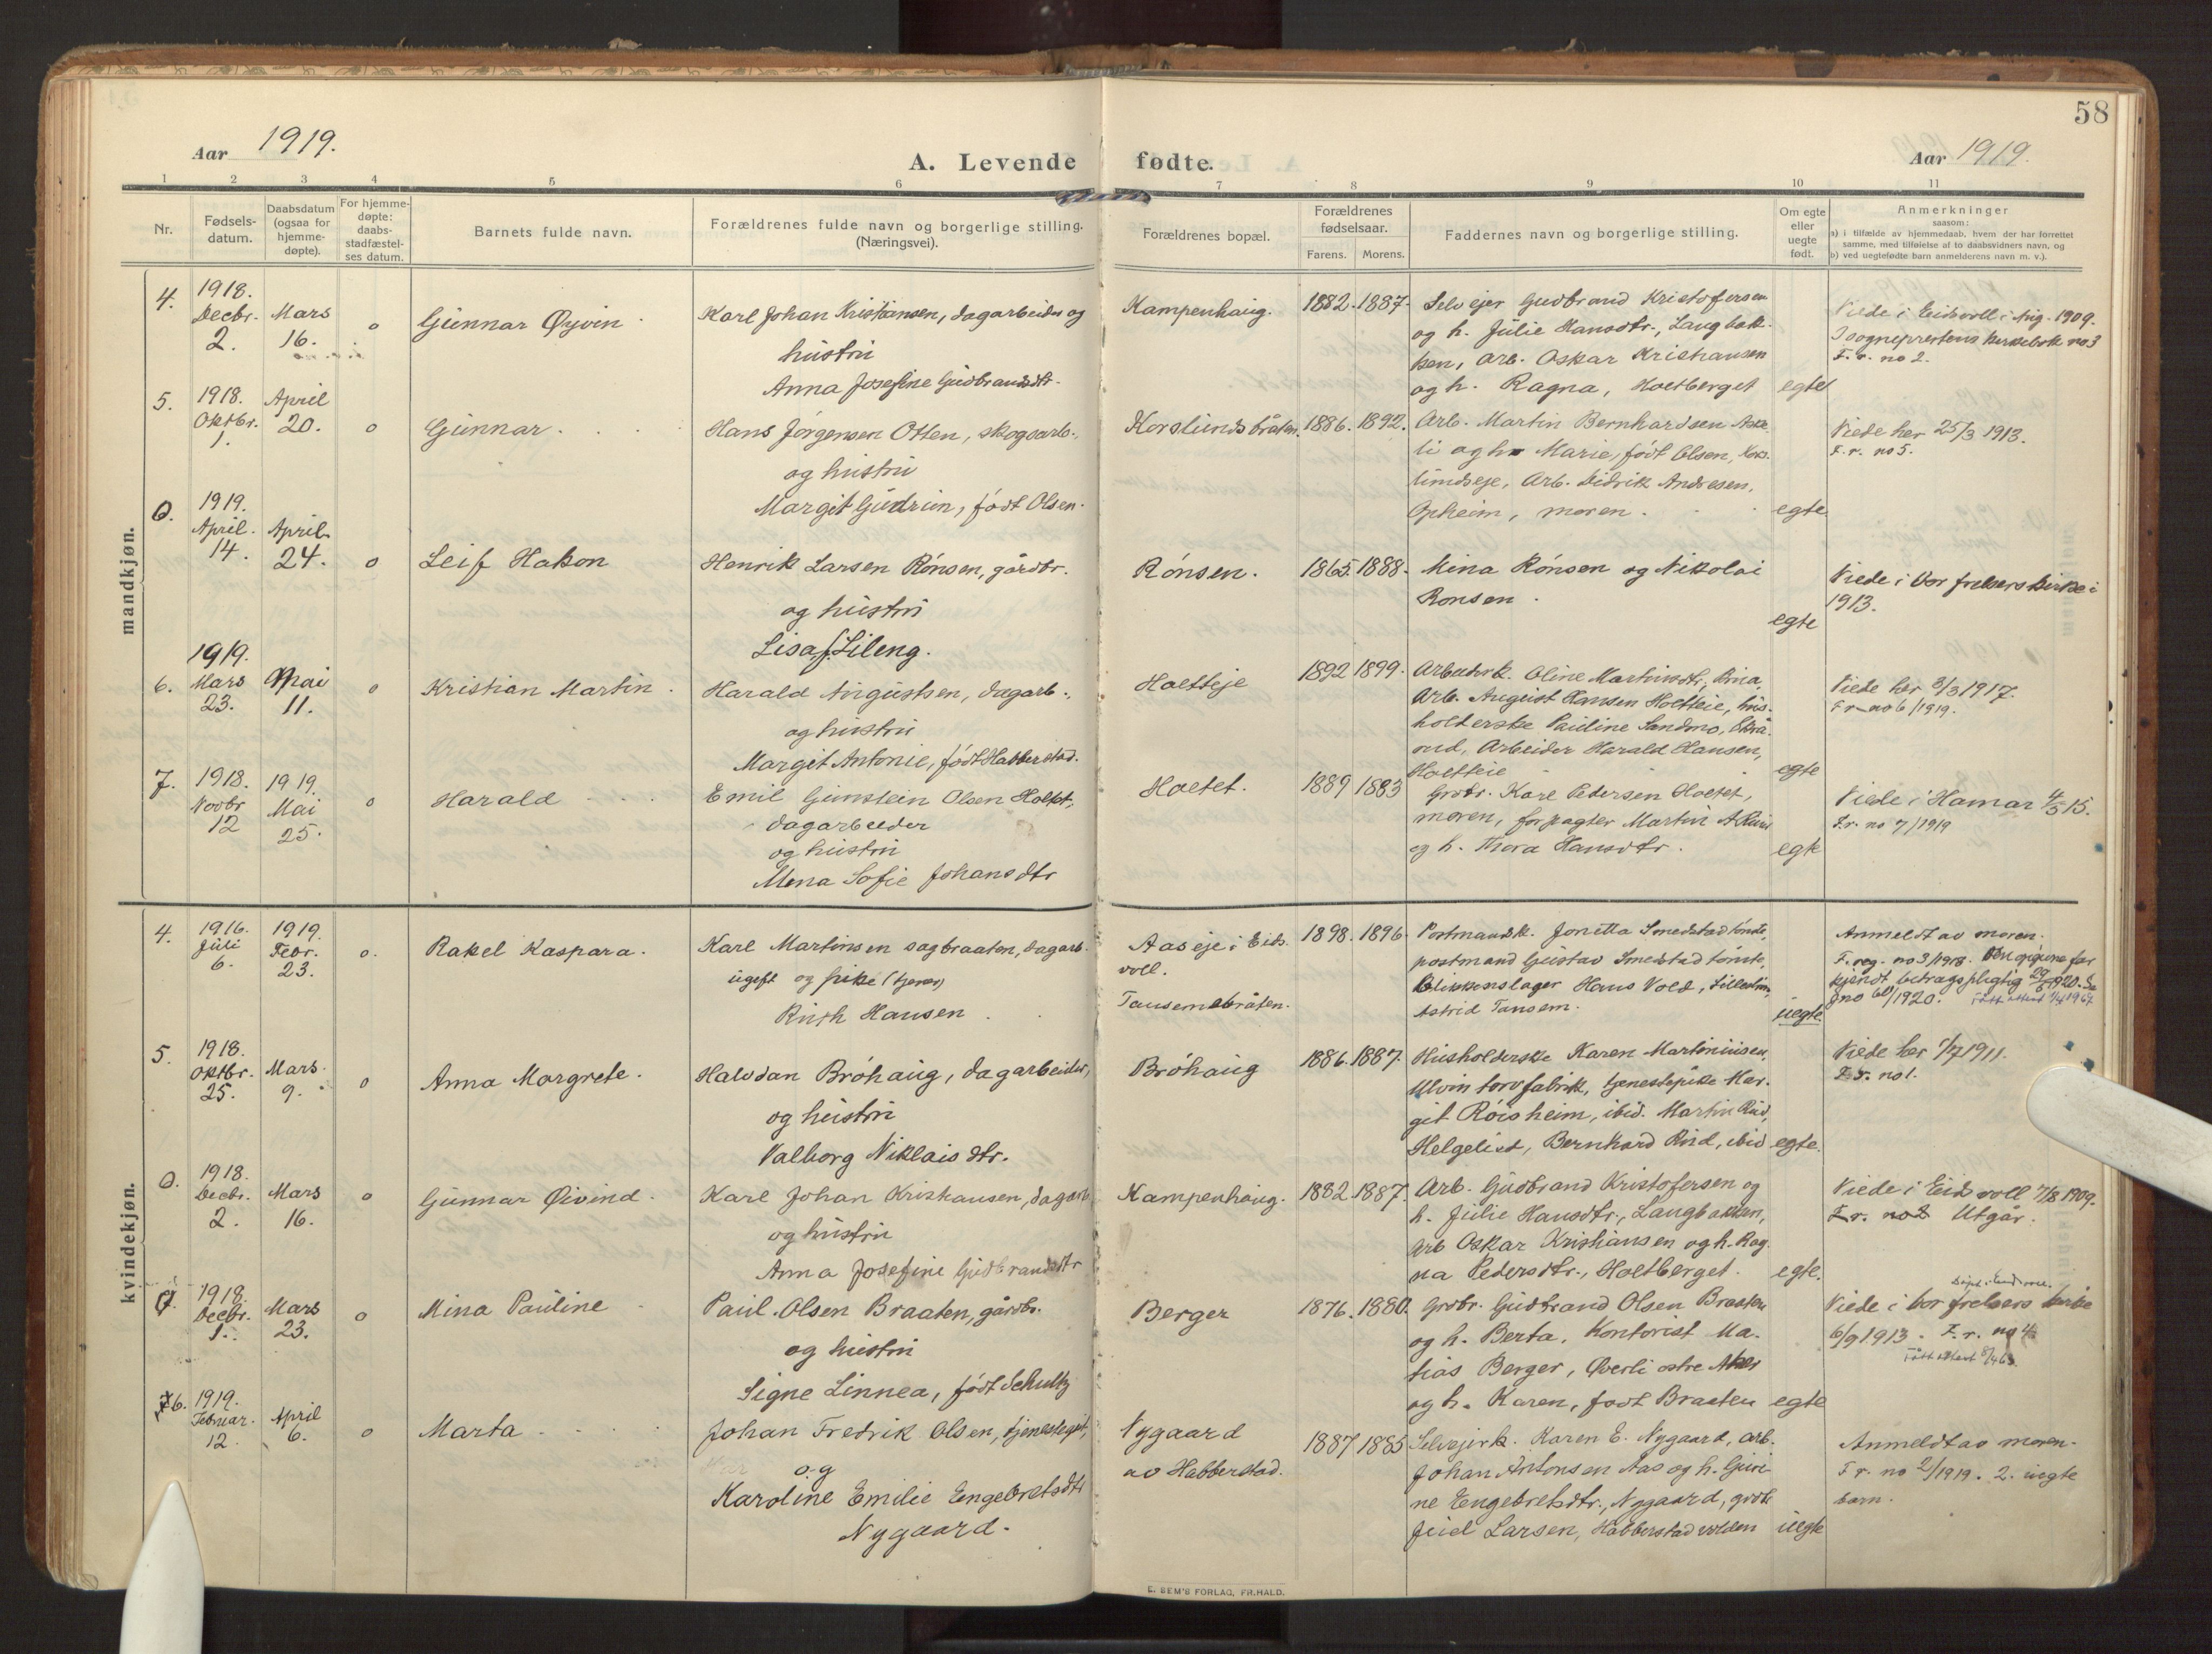 58
Aar 1919.
A. Levende fødte.
Aar 1919.
1 2 3 4 5 6 7 8 9 10 11
Nr.
Fødsels-
datum.
Daabsdatum
(ogsaa for
hjemme-
døpte).
For hjemme-
døpte:
daabs-
stadfæstel-
ses datum.
Barnets fulde navn.
Forældrenes fulde navn og borgerlige stilling.
(Næringsvei).
Forældrenes bopæl.
Forældrenes
fødselsaar.
Farens. Morens.
Faddernes navn og borgerlige stilling.
Om egte
eller
uegte
født.
Anmerkninger
saasom:
a) i tilfælde av hjemmedaab, hvem der har forrettet
samme, med tilføielse af to daabsvidners navn, og
b) ved uegtefødte barn anmelderens navn m. v.).
mandkjøn.
4.
1918.
Decbr.
2.
Mars
16.
o
Gunnar Øyvin
Karl Johan Kristiansen, dagarbeider og
hustru
Anna Josefine Gudbrandsdtr.
Kampenhaug.
1882. 1887.
Selvejer Gudbrand Kristofersen
og h. Julie Hansdtr., Langbak-
ken, arb. Oskar Kristiansen
og h. Ragna, Holtberget
egte
Viede i Eidsvoll i Aug. 1909.
Sogneprestens kirkebok no 3
F. r. no 2.
5.
1918.
Oktbr.
1.
April
20.
o
Gunnar.
Hans Jørgensen Otten, skogsarb.,
og hustru
Margit Gudrun, født Olsen.
Korslundsbråten.
1886. 1892.
Arb. Martin Bernhardsen
li og h. Marie, født Olsen, Kors-
lundseje, Arb. Didrik Andresen,
Opheim, moren.
egte.
Viede her 25/3 1913.
F. r. no 5.
0.
1919.
April.
14.
April
24.
o
Leif Hakon
Henrik Larsen Rønsen, gårdbr.
og hustru
Lisa f. Lileng.
Rønsen.
1865 1888.
Mina Rønsen og Nikolai
Ronsen.
egte
Viede i Vor frelsers kirke i
1913.
6.
1919.
Mars
23.
Mai
11.
o
Kristian Martin.
Harald Augustsen, dagarb.,
og hustru
Margit Antonie, født Habberstad.
Holteje
1892 1899.
Arbeidsk. Oline Martinsdtr,
Arb. August Hansen Holteie, hus-
holderske Pauline Sandmo,
Arbeider Harald Hansen,
Holteie
egte
Viede her 8/3 1917.
F r no 6/1919.
7.
1918.
Novbr
12
1919.
Mai
25.
o
Harald
Emil Gunstein Olsen Holtet,
dagarbeider
og hustru
Mina Sofie Johansdtr
Holtet.
1889 1883
Grdbr. Karl Pedersen Holtet,
moren, forpagter Martin A Ruud
og h. Thora Hansdtr.
egte
Viede i Hamar 4/5 15.
F. r. no 7/1919
kvindekjøn.
4.
1916.
Juli
6.
1919.
Febr.
23.
o.
Rakel Kaspara.
Karl Martinsen sagbraaten, dagarb.
ugift og pike (tjener)
Ruth Hansen
Aaseje i Eids-
voll.
Tausembråten.
1898. 1896.
Postmandsk. Jonetta Smedstadtomte,
postmand Gustav Smedstadtomte,
Blikkenslager Hans Vold, Lillestrøm,
Astrid Tansem.
uegte
Anmeldt av moren.
F. reg. no 3/1918. Den opgivne far
kjendt bidragspligtig 1920.
no 60/1920.
Født attest 1/4 1967
5.
1918.
Oktbr.
25.
Mars.
9.
o
Anna Margrete.
Halvdan Brøhaug, dagarbeider,
og hustru
Valborg Niklaisdtr.
Brøhaug
1886. 1887.
Husholderske Karen Martinusen,
Ulvin torvfabrik, tjenestepike Mar-
git Røisheim, ibid. Martin Rud,
Helgeliet, Bernhard Rud, ibid
egte.
Viede her 1/7 1911.
F. r. no 1.
0.
1918.
Decbr.
2.
Mars
16.
o
Gunnar Øivind.
Karl Johan Kristiansen, dagarb.
og hustru
Anna Josefine Gudbrandsdtr
Kampenhaug.
1882. 1887.
Arb. Gudbrand Kristofersen og
h. Julie Hansdtr., Langbakken,
Arb Oskar Kristiansen og h. Rag-
na Pedersdtr., Holtberget.
egte.
Viede i Eidsvoll 7/8 1909.
F. r. no 2 Utgår.
1918.
Decbr.
1.
Mars
23.
o
Mina Pauline
Paul Olsen Braaten, gårdbr.
og hustru
Signe Linnea, født Schultz
Berger
1876. 1880.
Grdbr. Gudbrand Olsen Braaten
og h. Berta, Kontorist Ma-
tias Berger, Øverli østre Aker
og h. Karen, født Braaten
egte
Viede i Vor frelsers kirke
6/9 1913. F. r. no 4
Født attest
6.
1919.
Februar.
12.
April
6.
o
Marta
Johan Fredrik Olsen, tjenestegut,
og
Karoline Emilie Engebretsdtr
Nygaard.
Nygaard
av Habberstad.
1887 1885
Selvejersk. Karen E. Nygaard, arb.
Johan Antonsen Aas og h. Guri-
ne Engebretsdtr., Nygaard, grdbr
Juel Larsen, Habberstadvolden
uegte
Anmeldt av moren.
F r. no 2/1919. 2. uegte
barn.
E. SEM'S FORLAG, FR.HALD.